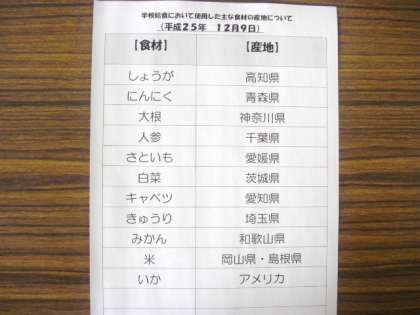 学校給食において使用した主な食材の産地について
(平成25年　12月9日)
【食材】 【産地】
しょうが 高知県
にんにく 青森県
大根 神奈川県
人参 千葉県
さといも 愛媛県
白菜 茨城県
キャベツ 愛知県
きゅうり 埼玉県
みかん 和歌山県
米 岡山県・島根県
いか アメリカ